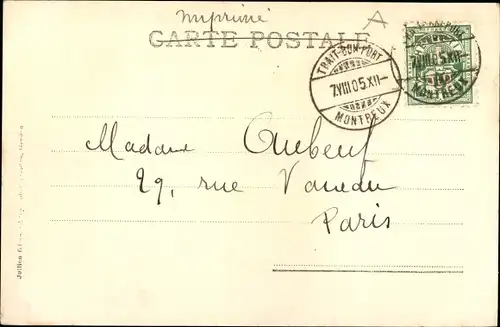 Imprimé
A
CARTE POSTALE
TRAIT-BON-PORT
7.VIII.05.XII-
MONTREUX
7.VIII.05.XII-
MONTREUX
Madame Aubeuf
29, rue Vaneau
Paris
Jullien